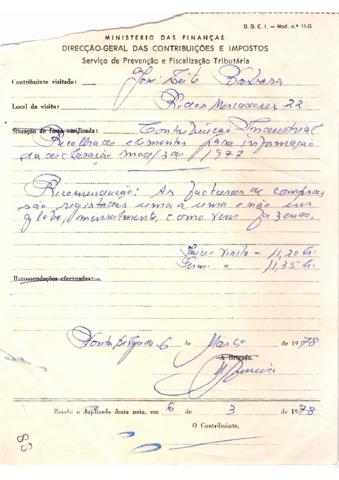 D. G. C. I. — Mod. n.º 11-G
MINISTÉRIO DAS FINANÇAS
DIRECÇÃO-GERAL DAS CONTRIBUIÇÕES E IMPOSTOS
Serviço de Prevenção e Fiscalização Tributária
Contribuinte visitado: José Leite Barbosa
Local da visita: R. dos Mercadores 22
Situação de facto verificada: Contribuição Industrial
Recolha de elementos para informação
da declaração mod/3 de 1977
Recomendação: As facturas de compras
são registadas uma a uma e não em
globo, mensalmente, como vem fazendo.
Início visita - 11,20 h.
Term. " 11,35 h.
Recomendações efectuadas:
Ponta Delgada 6 de Março de 1978
A Brigada,
Recebi o duplicado desta nota, em 6 de 3 de 1978
O Contribuinte,
83